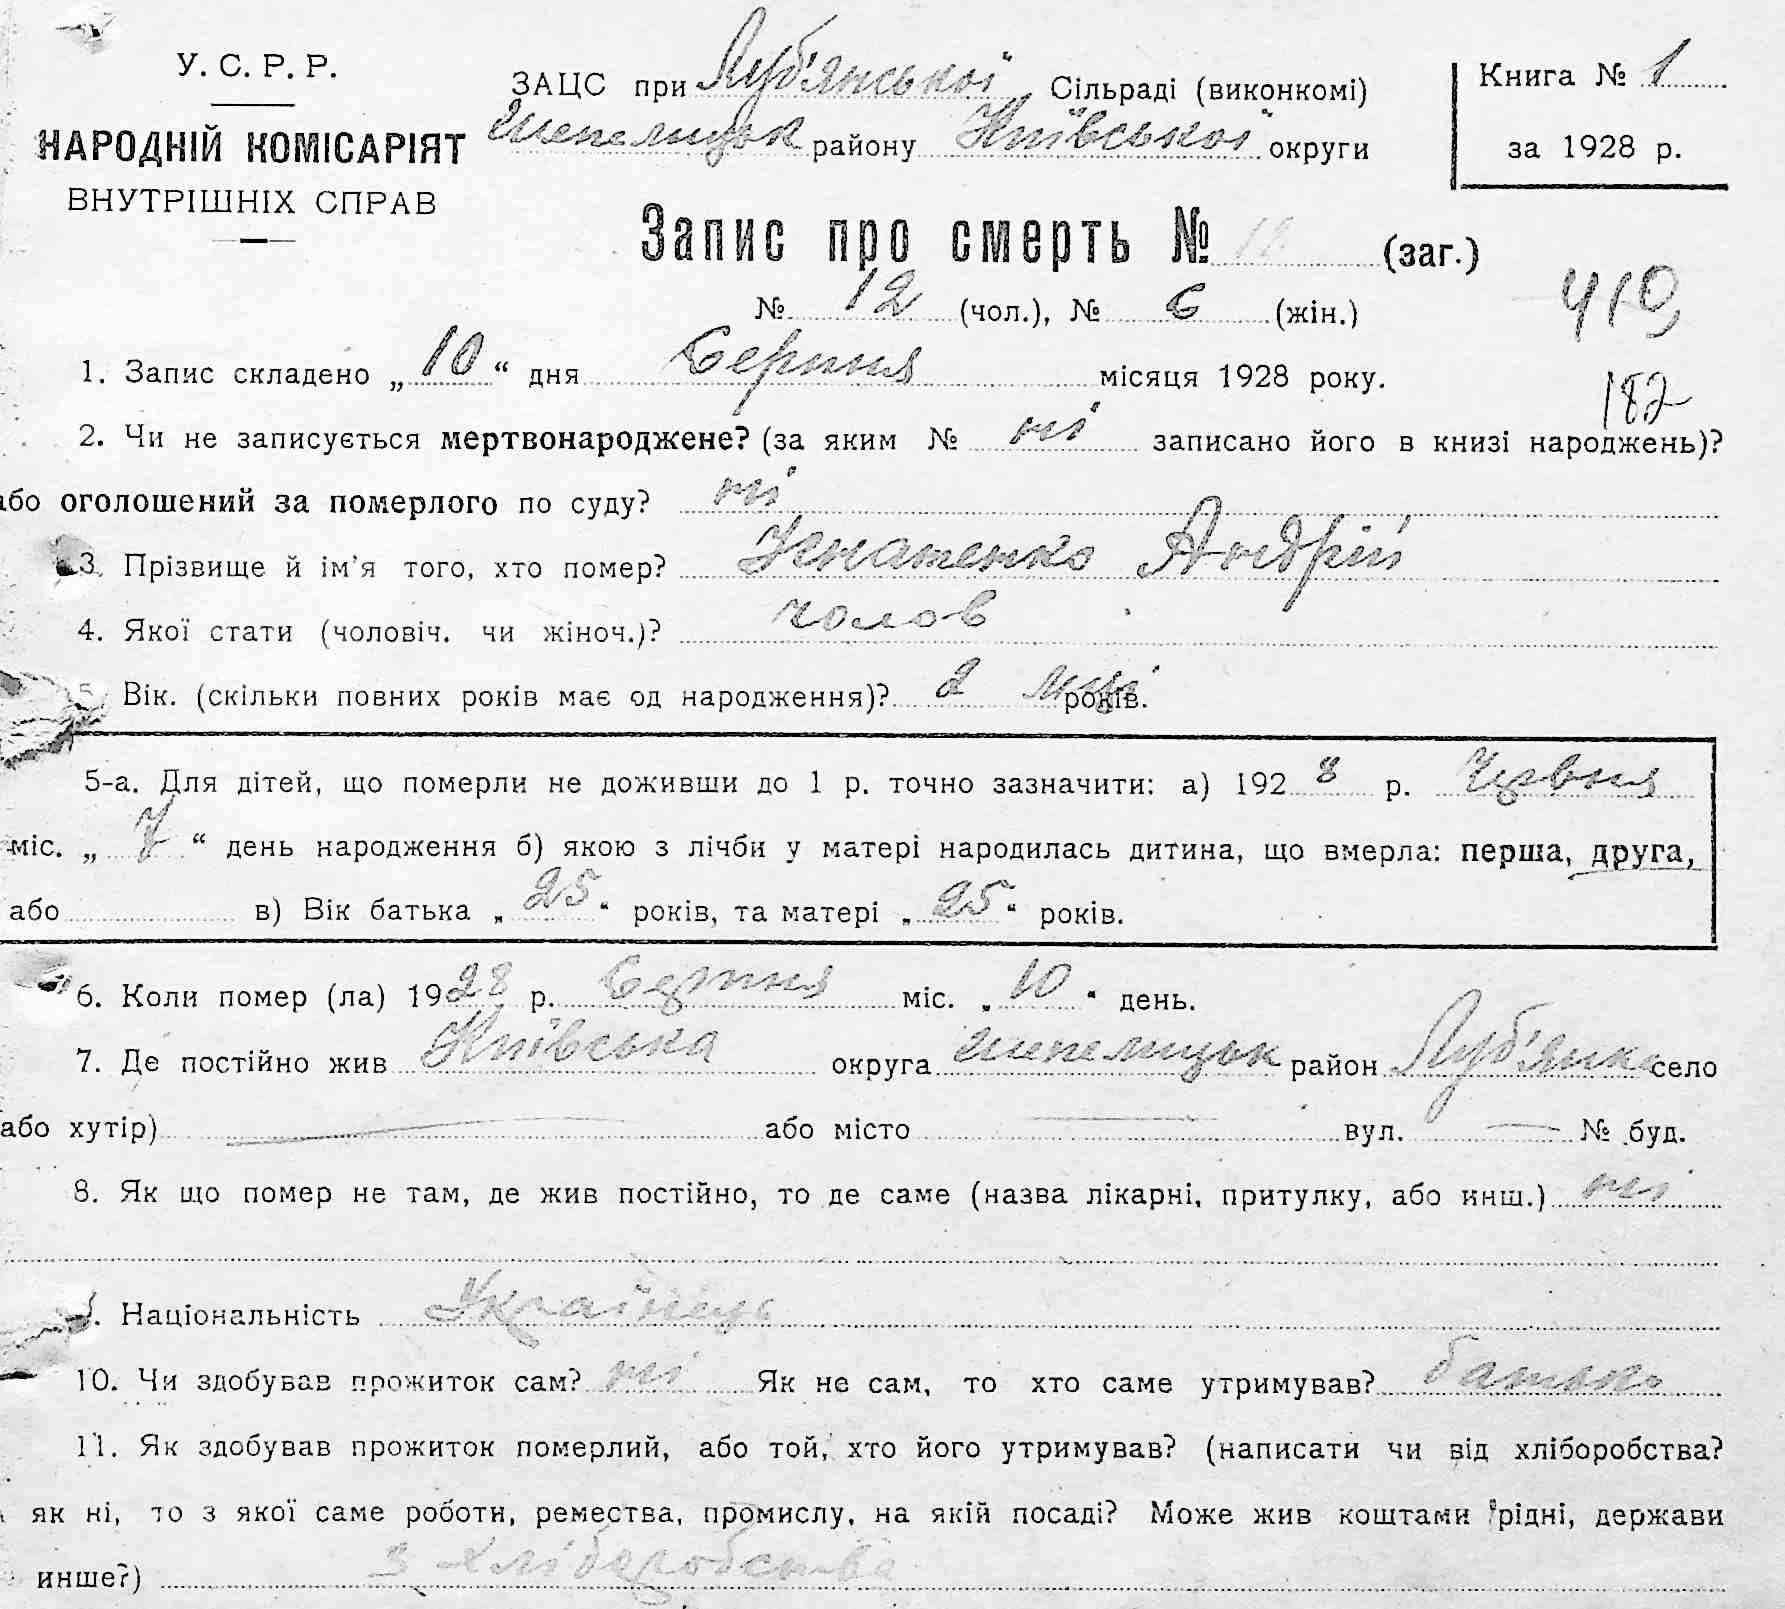 У. С. Р. Р.
НАРОДНІЙ КОМІСАРІЯТ
ВНУТРІШНІХ СПРАВ
ЗАЦС при Луб'янської Сільраді (виконкомі)
Шепелицьк району Київської округи
Книга № 1
за 1928 р.
Запис про смерть № (заг.)
№ 12 (чол.), № 6 (жін.)
410
1. Запис складено „10“ дня Серпня місяця 1928 року.
182
2. Чи не записується мертвонароджене? (за яким № ні записано його в книзі народжень)?
або оголошений за померлого по суду? ні
3. Прізвище й ім'я того, хто помер? Ігнатенко Андрій
4. Якої стати (чоловіч. чи жіноч.)? чолов
5. Вік. (скільки повних років має од народження)? 2 місі років.
5-а. Для дітей, що померли не доживши до 1 р. точно зазначити: а) 1928 р. Червня
міс. „7“ день народження б) якою з лічби у матері народилась дитина, що вмерла: перша, друга,
або в) Вік батька „25“ років, та матері „25“ років.
6. Коли помер (ла) 1928 р. Серпня міс. „10“ день.
7. Де постійно жив Київська округа Шепелицьк район Луб'янка село
або хутір) — або місто — вул. — № буд.
8. Як що помер не там, де жив постійно, то де саме (назва лікарні, притулку, або инш.) ні
9. Національність Українець
10. Чи здобував прожиток сам? ні Як не сам, то хто саме утримував? батько
11. Як здобував прожиток померлий, або той, хто його утримував? (написати чи від хліборобства?
як ні, то з якої саме роботи, ремества, промислу, на якій посаді? Може жив коштами рідні, держави
инше?) з хліборобства